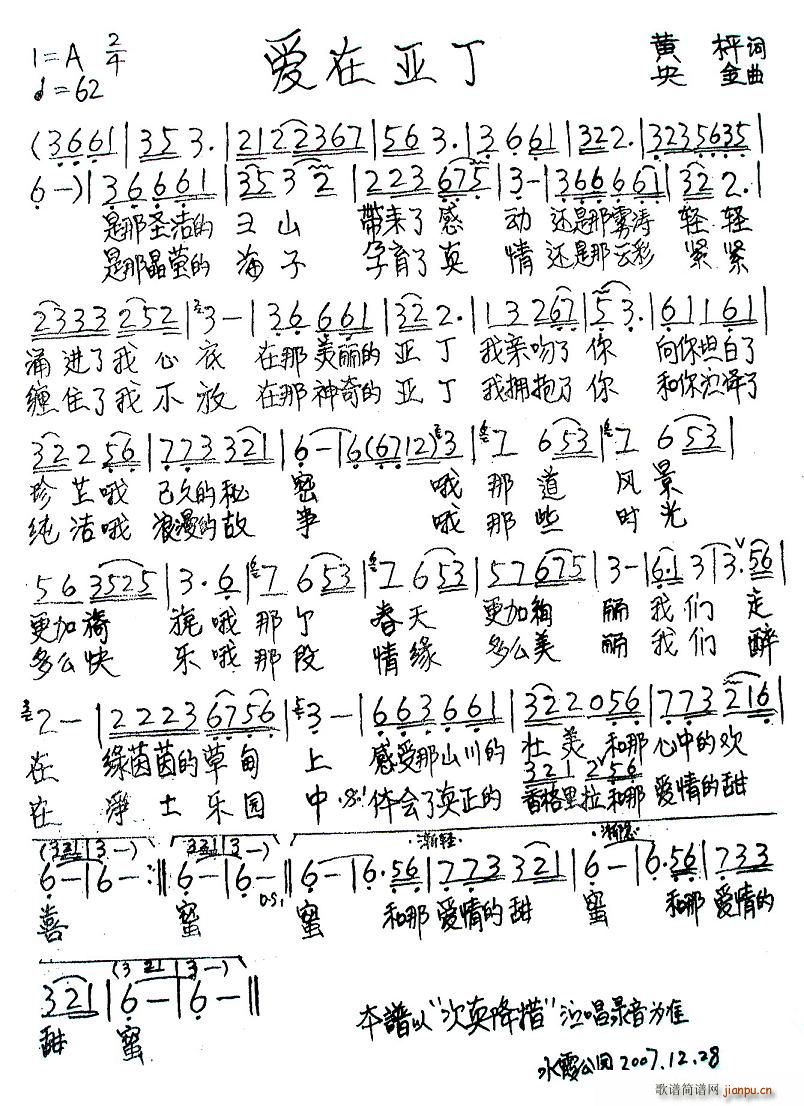 1=A 2/4
♩=62
爱在亚丁
黄枰词
央金曲
(3661|353.|21222367|563.|3661|322.|32356535|
6-)|36661|3532|223675|3-|366661|322.|
是那圣洁的 山 带来了感动 还是那雾涛 轻轻
是那晶莹的海子 孕育了真情 还是那云彩 紧紧
2333252|3-|36661|322.|13267|53.|61161|
涌进了我心底 在那美丽的亚丁 我亲吻了你 向你坦白了
缠住了我不放 在那神奇的亚丁 我拥抱了你 和你演译了
32256|773321|6-|6(6712)3|7653|7653|
珍芷哦 已久的秘密 哦那道风景
纯洁哦 浪漫的故事 哦那些时光
563525|3.6|7653|7653|57675|3-|6.13|3.56|
更加旖旎哦那个春天 更加绚丽我们走
多么快乐哦那段情缘 多么美丽我们醉
2-|22236756|3-|663661|322056|773216|
在 绿茵茵的草甸上 感受那山川的壮美 和那心中的欢
321 2 56
在净土乐园中 体会了真正的香格里拉和那爱情的甜
(321|3-) (321|3-) 渐轻 渐慢
6-|6-:||6-|6-||6-|6.56|773321|6-|6.56|733
D.S.
喜 蜜 蜜 和那爱情的甜 蜜 和那爱情的
(321|3-)
321|6-|6-||
甜 蜜
本譜以“次真降措”演唱录音为准
水霞公园2007.12.28
歌谱简谱网
jianpu.cn